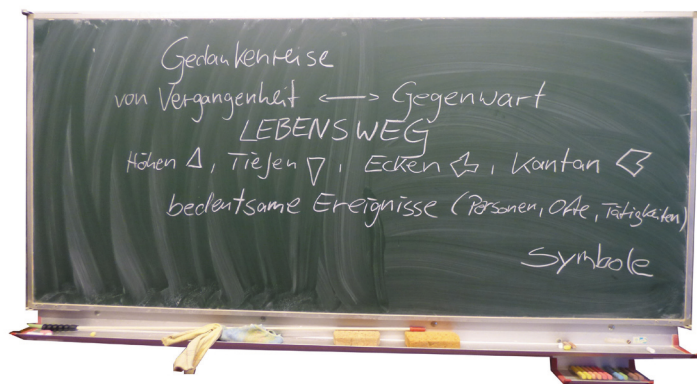 Gedankenreise
von Vergangenheit ⟷ Gegenwart
LEBENSWEG
Höhen, Tiefen, Ecken, Kantan
bedeutsame Ereignisse (Personen, Orte, Tätigkeiten)
Symbole